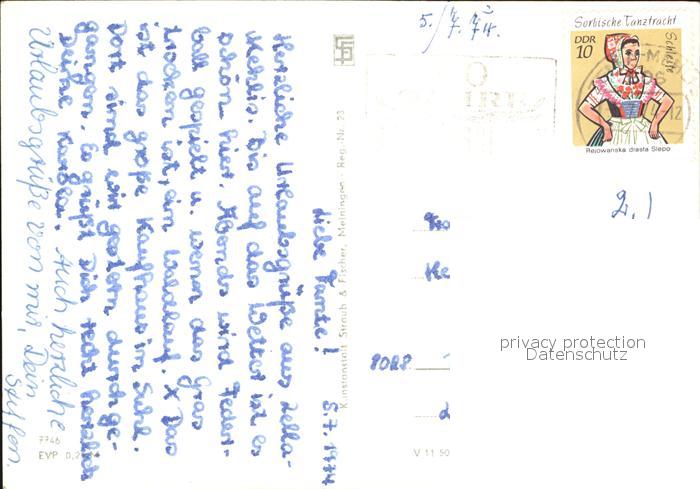 5.7.1974
Liebe Tante!
Herzliche Urlaubsgrüße aus Zella-
Mehlis. Bis auf das Wetter ist es
schön hier. Abends wird Feder-
ball gespielt u. wenn das Gras
trocken ist, ein Waldlauf. X Das
ist das große Kaufhaus in Suhl.
Dort sind wir gestern durchge-
gangen. Es grüßt Dich recht herzlich
Deine Karola. Auch herzliche
Urlaubsgrüße von mir, Dein
Steffen.
7746
EVP 0,2
Kunstanstalt Straub & Fischer, Meiningen - Reg. Nr. 23
V 11 50
Sorbische Tanztracht
Schleife
DDR
10
Rejowanska drasta Slepo
2.1
8028
privacy protection
Datenschutz